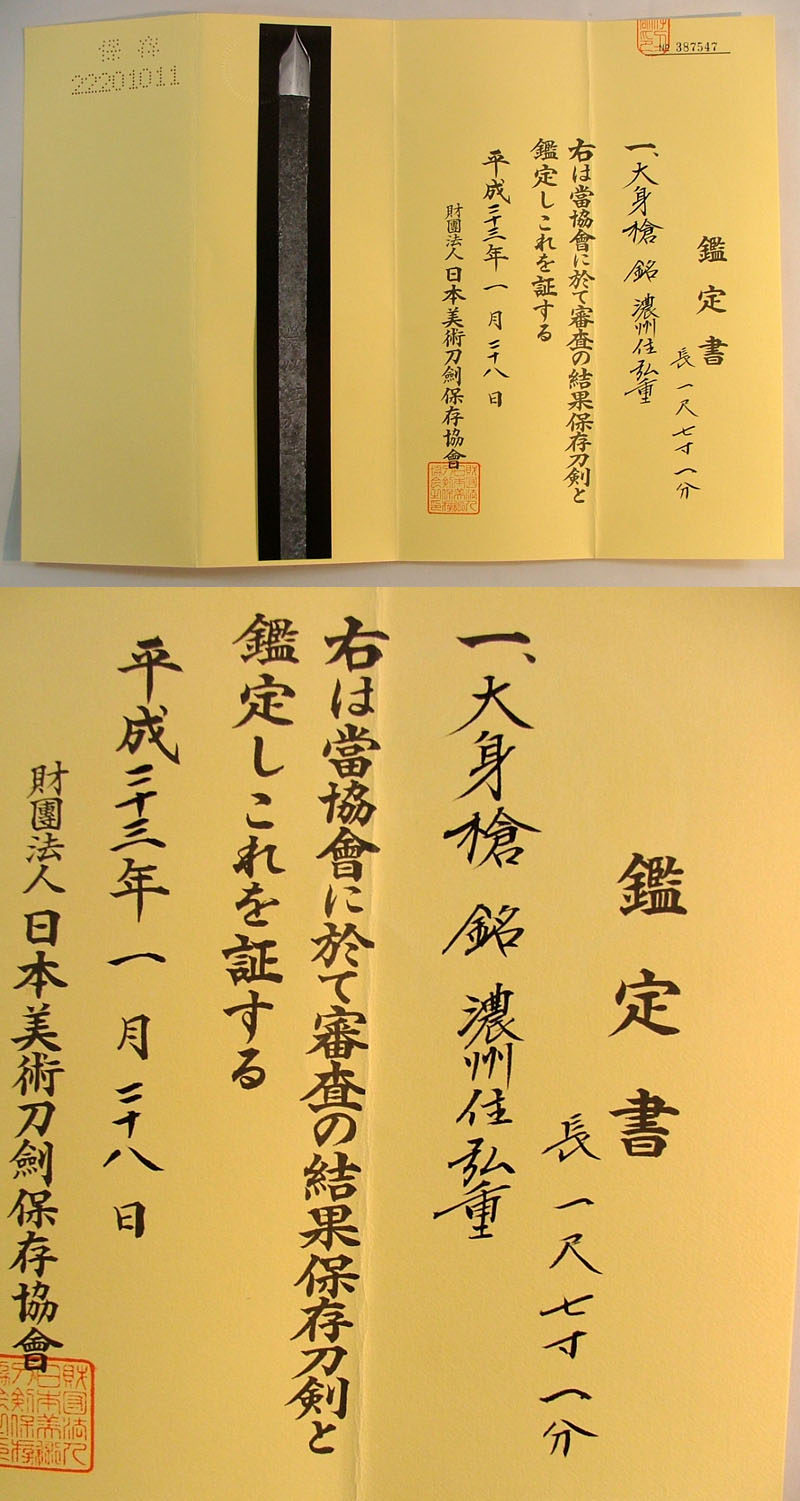 保存
22201011
No 387547
鑑定書
長一尺七寸一分
一、大身槍 銘 濃州住弘重
右は當協會に於て審査の結果保存刀剣と
鑑定しこれを証する
平成二十三年一月二十八日
財團法人 日本美術刀劍保存協會
鑑定書
長一尺七寸一分
一、大身槍 銘 濃州住弘重
右は當協會に於て審査の結果保存刀剣と
鑑定しこれを証する
平成二十三年一月二十八日
財團法人 日本美術刀劍保存協會